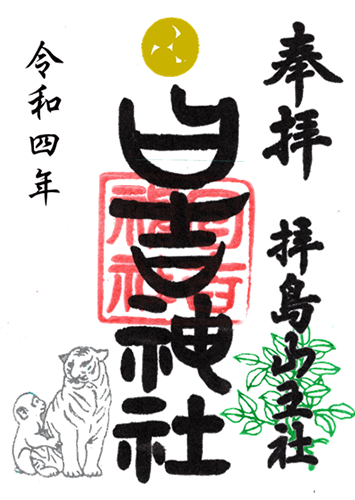 奉拝
拝島山王社
日吉神社
令和四年